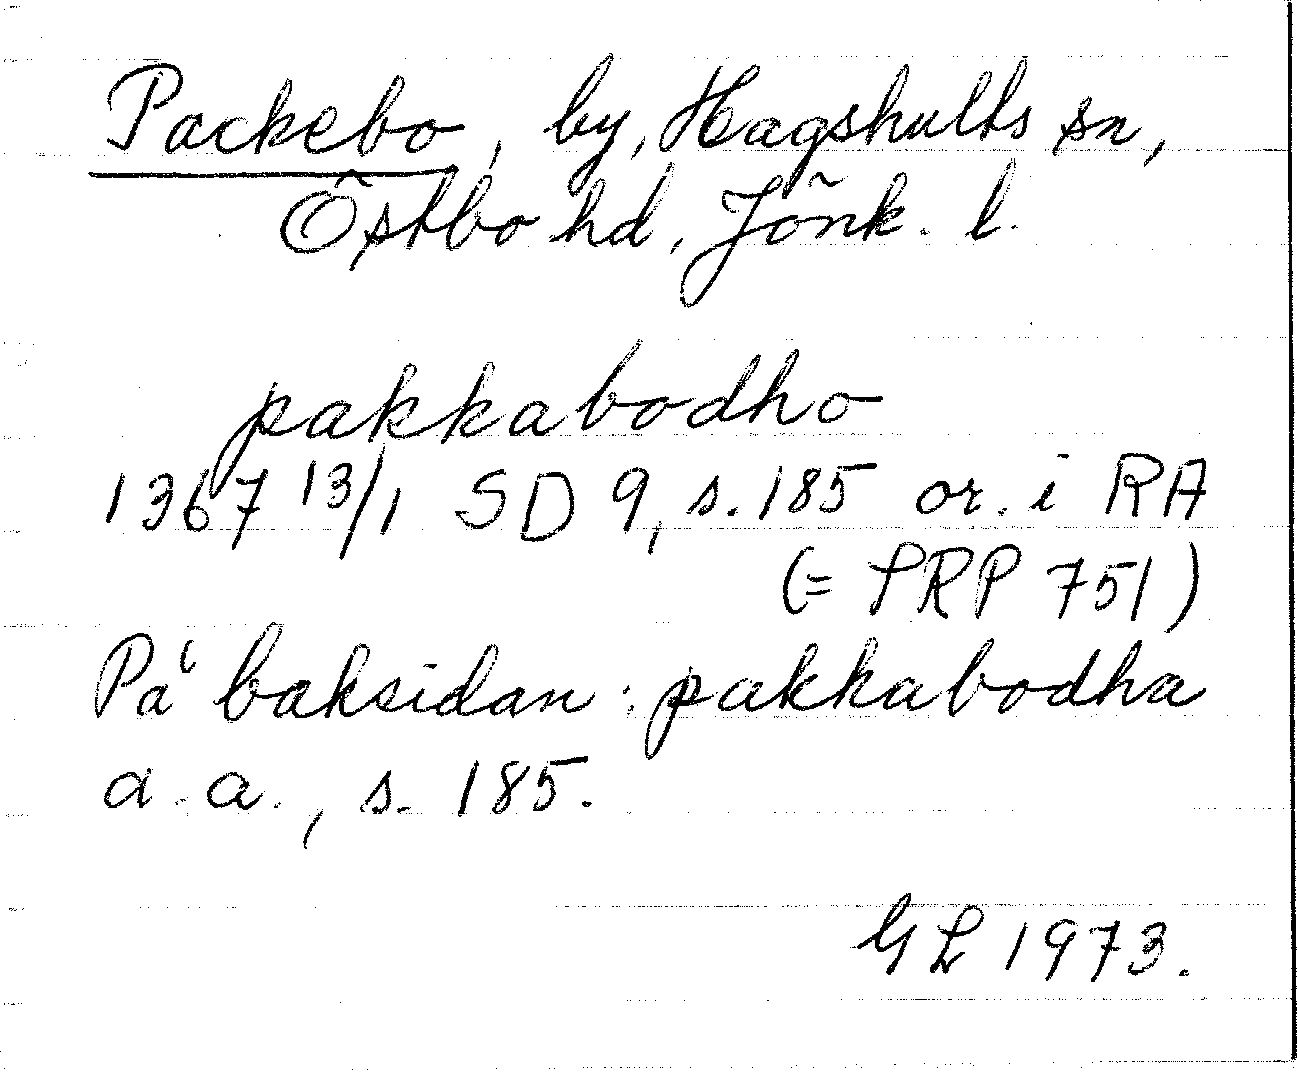 Packebo, by, Hagshults sn,
Östbo hd, Jönk. l.
pakkabodho
1367 13/1 SD 9, s. 185 or. i RA
(= SRP 751)
På baksidan: pakkabodha
a.a., s. 185.
GL 1973.